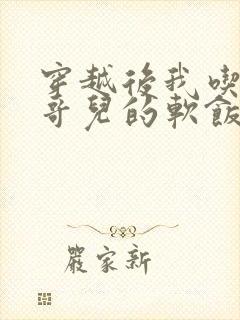 穿越後我喫
哥兒的軟飯
嚴家新